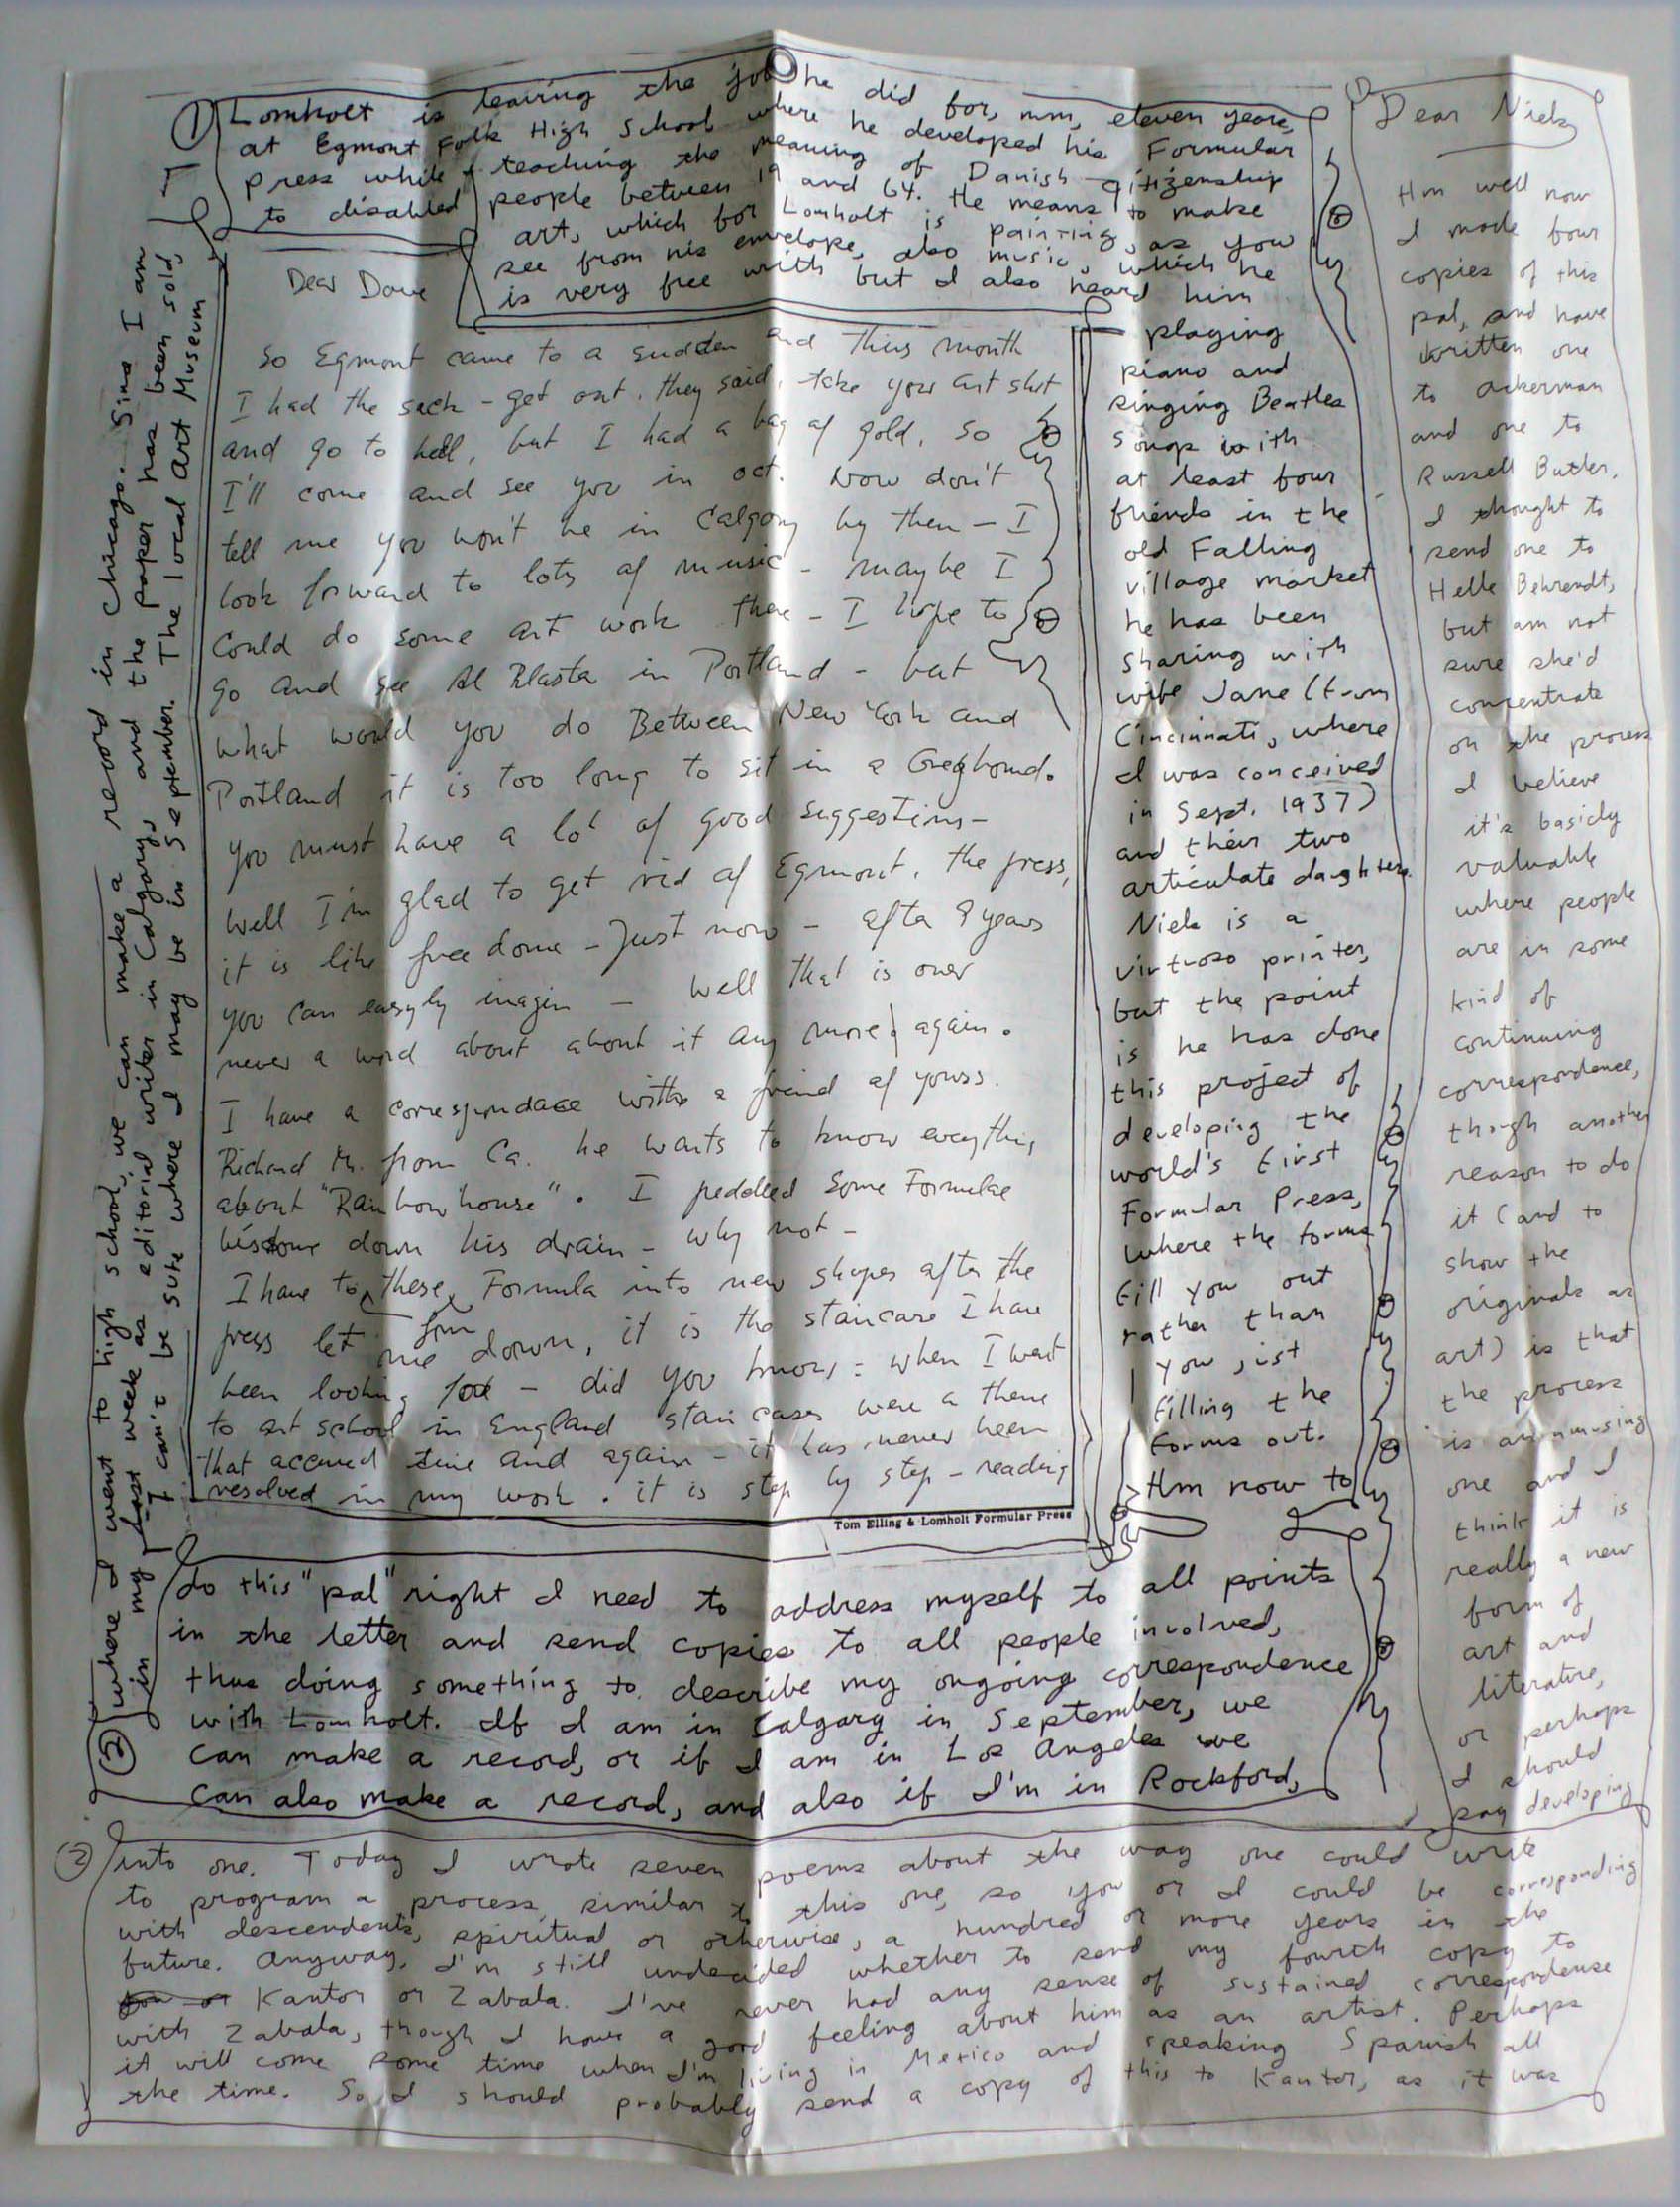 ① Lomholt is leaving the job he did for, mm, eleven years,
at Egmont Folk High School where he developed his Formular
Press while teaching the meaning of Danish citizenship
to disabled people between 19 and 64. He means to make
art, which for Lomholt is painting, as you
see from his envelope, also music, which he
is very free with but I also heard him
playing
piano and
singing Beatles
songs with
at least four
friends in the
old Falling
village market
he has been
sharing with
wife Jane (from
Cincinnati, where
I was conceived
in Sept. 1937)
and their two
articulate daughters.
Niels is a
virtuoso printer,
but the point
is he has done
this project of
developing the
world's first
Formular Press,
where the forms
fill you out
rather than
you just
filling the
forms out.
Hm now to
Dear Dave
So Egmont came to a sudden end this month
I had the sack - get out, they said, take your art shit
and go to hell, but I had a bag of gold, so
I'll come and see you in oct. Now don't
tell me you won't be in Calgary by then - I
look forward to lots of music - maybe I
could do some art work there - I hope to
go and see Al Blasta in Portland - but
what would you do Between New York and
Portland it is too long to sit in a Greyhound.
you must have a lot of good suggestions -
Well I'm glad to get rid of Egmont, the press,
it is like freedome - Just now - after 9 years
you can easyly imagin - well that is over
never a word about about it any more again.
I have a correspondace withe a friend of yourss.
Richard M. from Ca. he wants to know everything
about "Rainbow house". I peddled some Formulae
down his drain - why not -
I have to form these Formula into new shapes after the
press let me down, it is the staircase I have
been looking for - did you know: when I went
to art school in England staircases were a theme
that accured time and again - it has never been
resolved in my work. it is step by step - reading
Tom Elling & Lomholt Formular Press
do this "pal" right I need to address myself to all points
in the letter and send copies to all people involved,
thus doing something to describe my ongoing correspondence
with Lomholt. If I am in Calgary in September, we
can make a record, or if I am in Los Angeles we
can also make a record, and also if I'm in Rockford,
② where I went to high school, we can make a record in Chicago. Since I am
in my last week as editorial writer in Calgary, and the paper has been sold,
I can't be sure where I may be in September. The local Art Museum
① Dear Niels
Hm well now
I made four
copies of this
pal, and have
written one
to Ackerman
and one to
Russell Butler.
I thought to
send one to
Helle Behrendt,
but am not
sure she'd
concentrate
on the process
I believe
it's basicly
valuable
where people
are in some
kind of
continuing
correspondence,
though another
reason to do
it (and to
show the
originals as
art) is that
the process
is an amusing
one and I
think it is
really a new
form of
art and
literature,
or perhaps
I should
say developing
② into one. Today I wrote seven poems about the way one could write
to program a process similar to this one, so you or I could be corresponding
with descendents, spiritual or otherwise, a hundred or more years in the
future. Anyway, I'm still undecided whether to send my fourth copy to
Kantor or Zabala. I've never had any sense of sustained correspondense
with Zabala, though I have a good feeling about him as an artist. Perhaps
it will come some time when I'm living in Mexico and speaking Spanish all
the time. So I should probably send a copy of this to Kantor, as it was